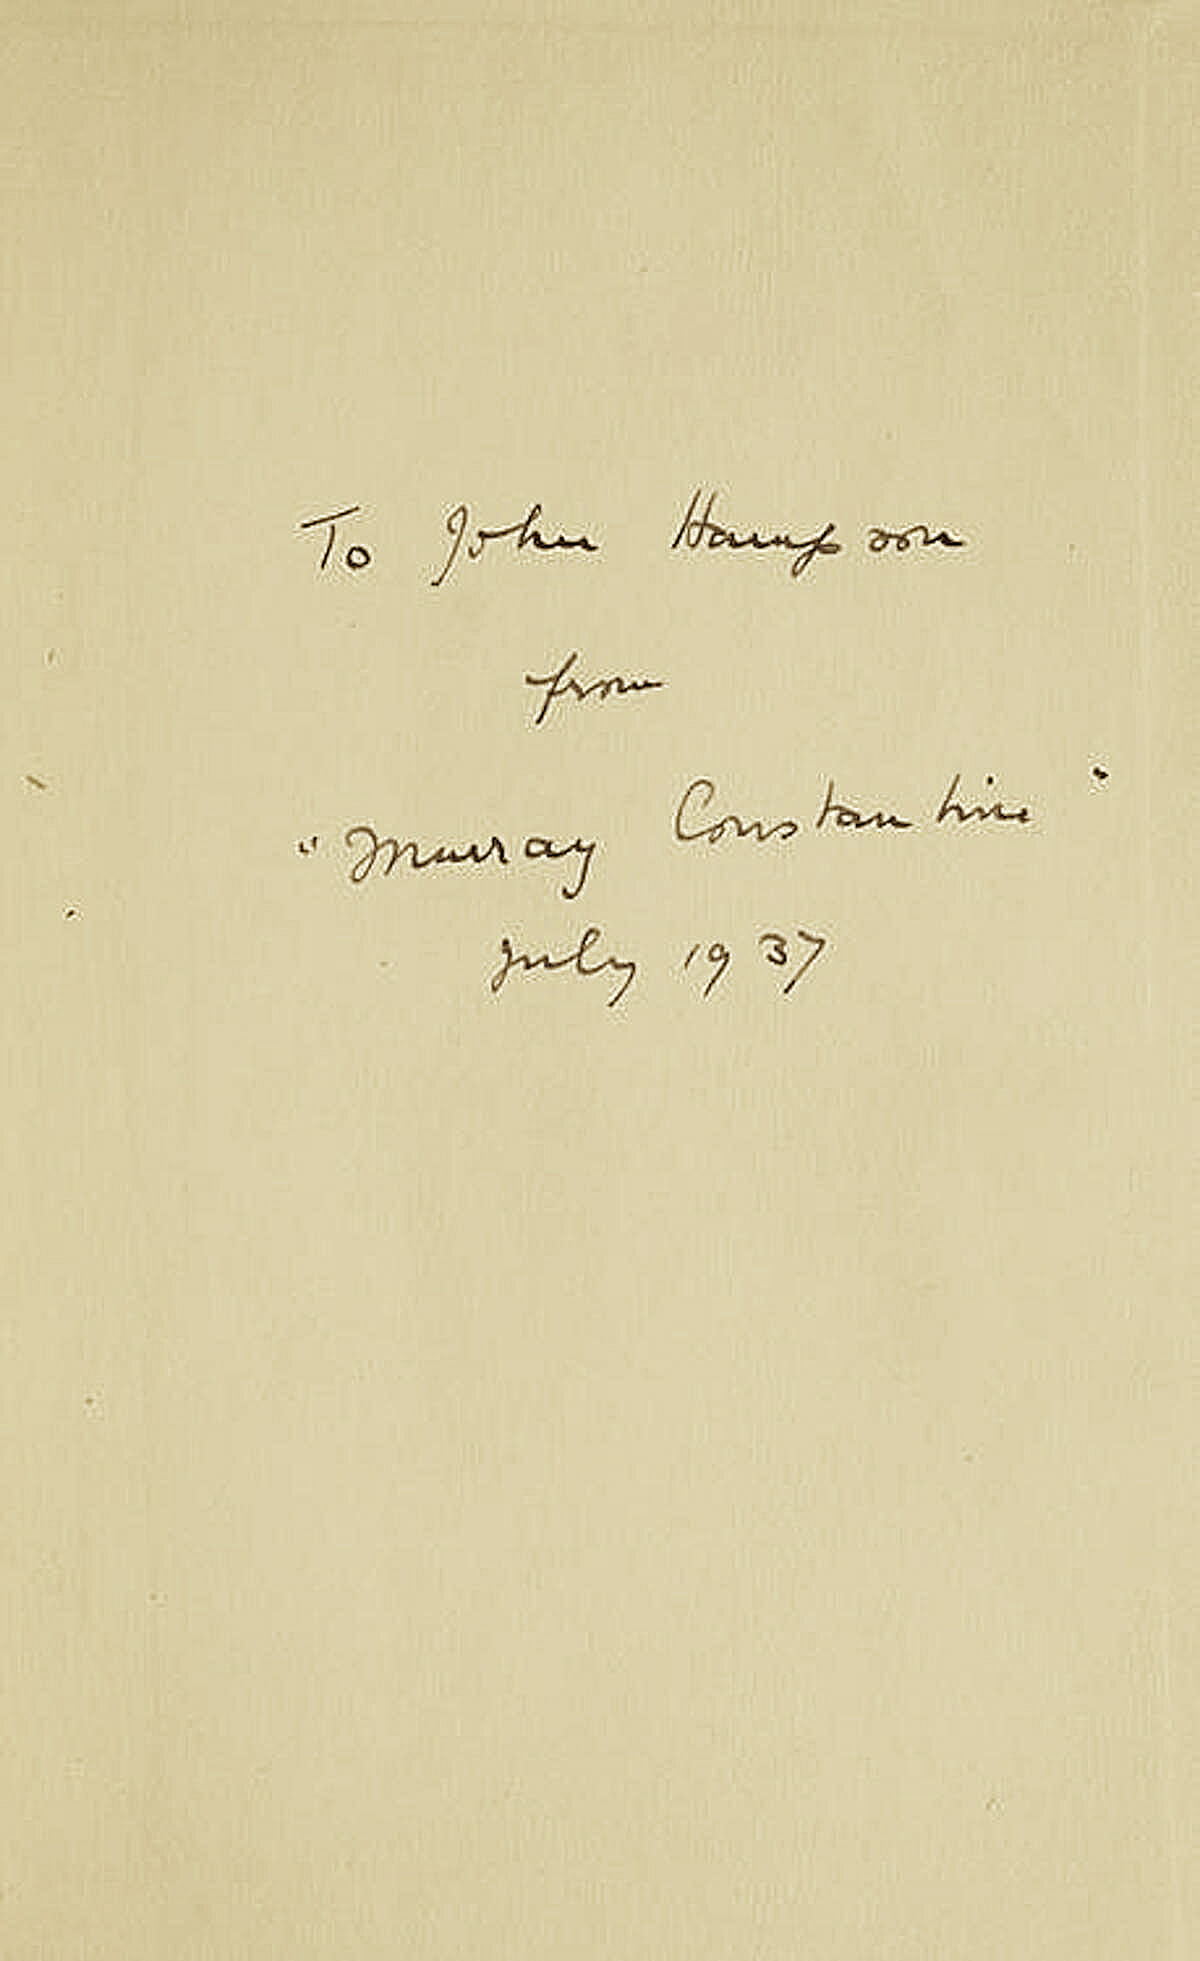 To John Hampson
from
"Murray Constantine"
July 1937